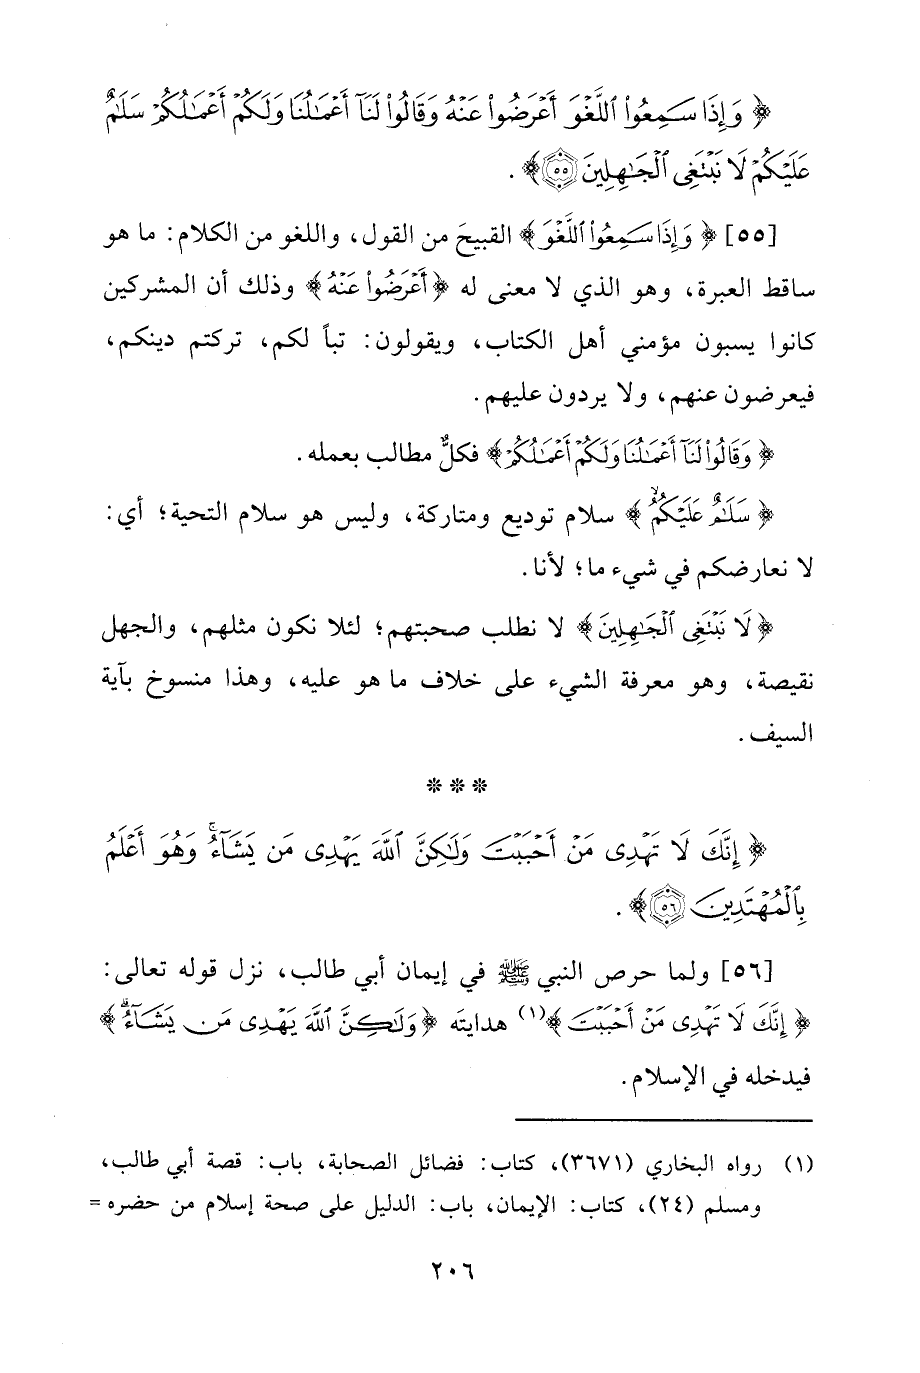 ﴿ وَإِذَا سَمِعُوا۟ ٱللَّغْوَ أَعْرَضُوا۟ عَنْهُ وَقَالُوا۟ لَنَآ أَعْمَـٰلُنَا وَلَكُمْ أَعْمَـٰلُكُمْ سَلَـٰمٌ
عَلَيْكُمْ لَا نَبْتَغِى ٱلْجَـٰهِلِينَ ۝٥٥ ﴾ .
[٥٥] ﴿ وَإِذَا سَمِعُوا۟ ٱللَّغْوَ ﴾ القبيحَ من القول، واللغو من الكلام: ما هو
ساقط العبرة، وهو الذي لا معنى له ﴿ أَعْرَضُوا۟ عَنْهُ ﴾ وذلك أن المشركين
كانوا يسبون مؤمني أهل الكتاب، ويقولون: تباً لكم، تركتم دينكم،
فيعرضون عنهم، ولا يردون عليهم.
﴿ وَقَالُوا۟ لَنَآ أَعْمَـٰلُنَا وَلَكُمْ أَعْمَـٰلُكُمْ ﴾ فكلٌّ مطالب بعمله.
﴿ سَلَـٰمٌ عَلَيْكُمْ ۖ ﴾ سلام توديع ومتاركة، وليس هو سلام التحية؛ أي:
لا نعارضكم في شيء ما؛ لأنا.
﴿ لَا نَبْتَغِى ٱلْجَـٰهِلِينَ ﴾ لا نطلب صحبتهم؛ لئلا نكون مثلهم، والجهل
نقيصة، وهو معرفة الشيء على خلاف ما هو عليه، وهذا منسوخ بآية
السيف.
* * *
﴿ إِنَّكَ لَا تَهْدِى مَنْ أَحْبَبْتَ وَلَـٰكِنَّ ٱللَّهَ يَهْدِى مَن يَشَآءُ ۚ وَهُوَ أَعْلَمُ
بِٱلْمُهْتَدِينَ ۝٥٦ ﴾ .
[٥٦] ولما حرص النبي ﷺ في إيمان أبي طالب، نزل قوله تعالى:
﴿ إِنَّكَ لَا تَهْدِى مَنْ أَحْبَبْتَ ﴾(١) هدايتَه ﴿ وَلَـٰكِنَّ ٱللَّهَ يَهْدِى مَن يَشَآءُ ۚ ﴾
فيدخله في الإسلام.
(١) رواه البخاري (٣٦٧١)، كتاب: فضائل الصحابة، باب: قصة أبي طالب،
ومسلم (٢٤)، كتاب: الإيمان، باب: الدليل على صحة إسلام من حضره =
٢٠٦